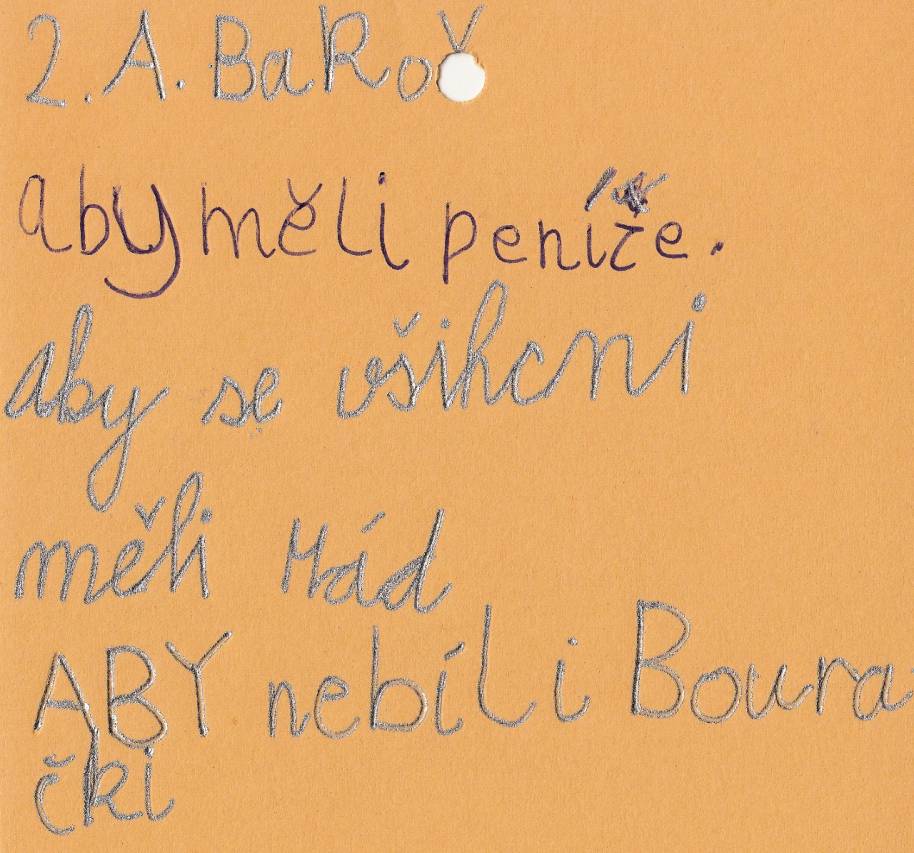 2. A. BaRoš
aby měli peníze.
aby se všihcni
měli rád
ABY nebíli Boura
čki